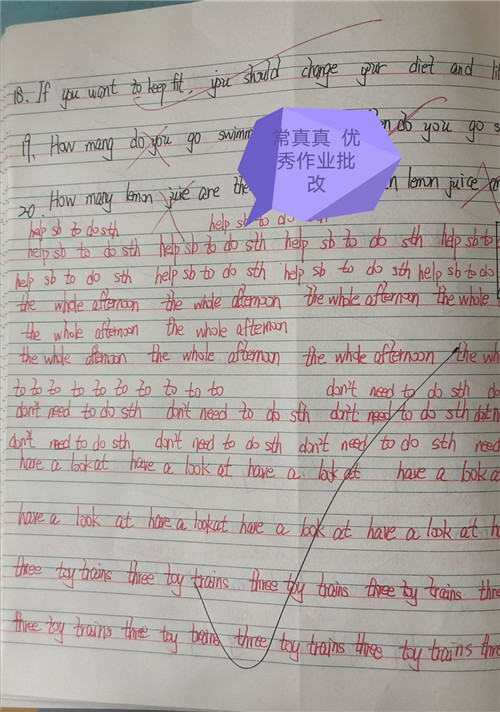 18. If you want to keep fit, you should change your diet and
19. How mang do you go swimm do you go s
20. How many lemon juie are the lemon juice
常真真 优
秀作业批
改
help sb to do sth help sb to do
help sb to do sth help sb to do sth help sb to do sth help sb to
help sb to do sth help sb to do sth help sb to do sth help sb to do
the whole afternoon the whole afternoon the whole afternoon the whole
the whole afternoon the whole afternoon
the whole afternoon the whole afternoon the whole afternoon the wh
to to to to to to to to to don't need to do sth do
don't need to do sth don't need to do sth don't need to do sth
don't need to do sth don't need to do sth don't need to do sth need
have a look at have a look at have a look at have a look a
have a look at have a look at have a look at have a look at h
three toy trains three toy trains three toy trains three toy trains thre
three toy trains three toy trains three toy trains three toy trains three